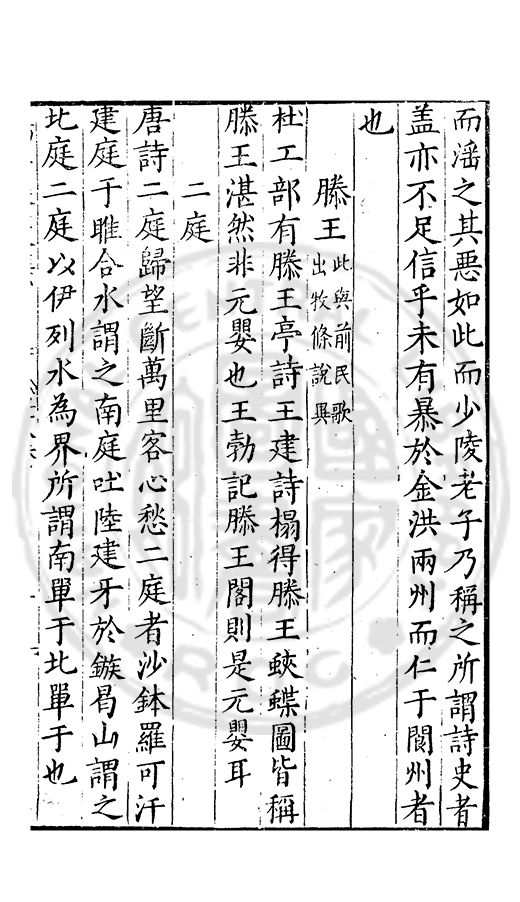 而滛之其惡如此而少陵老子乃稱之所謂詩史者
盖亦不足信乎未有暴於金洪兩州而仁于閬州者
也
滕王此與前民歌出牧條說異
杜工部有滕王亭詩王建詩榻得滕王蛺蝶圖皆稱
滕王湛然非元嬰也王勃記滕王閣則是元嬰耳
二庭
唐詩二庭歸望斷萬里客心愁二庭者沙鉢羅可汗
建庭于睢合水謂之南庭吐陸建牙於鏃曷山謂之
北庭二庭以伊列水為界所謂南單于北單于也